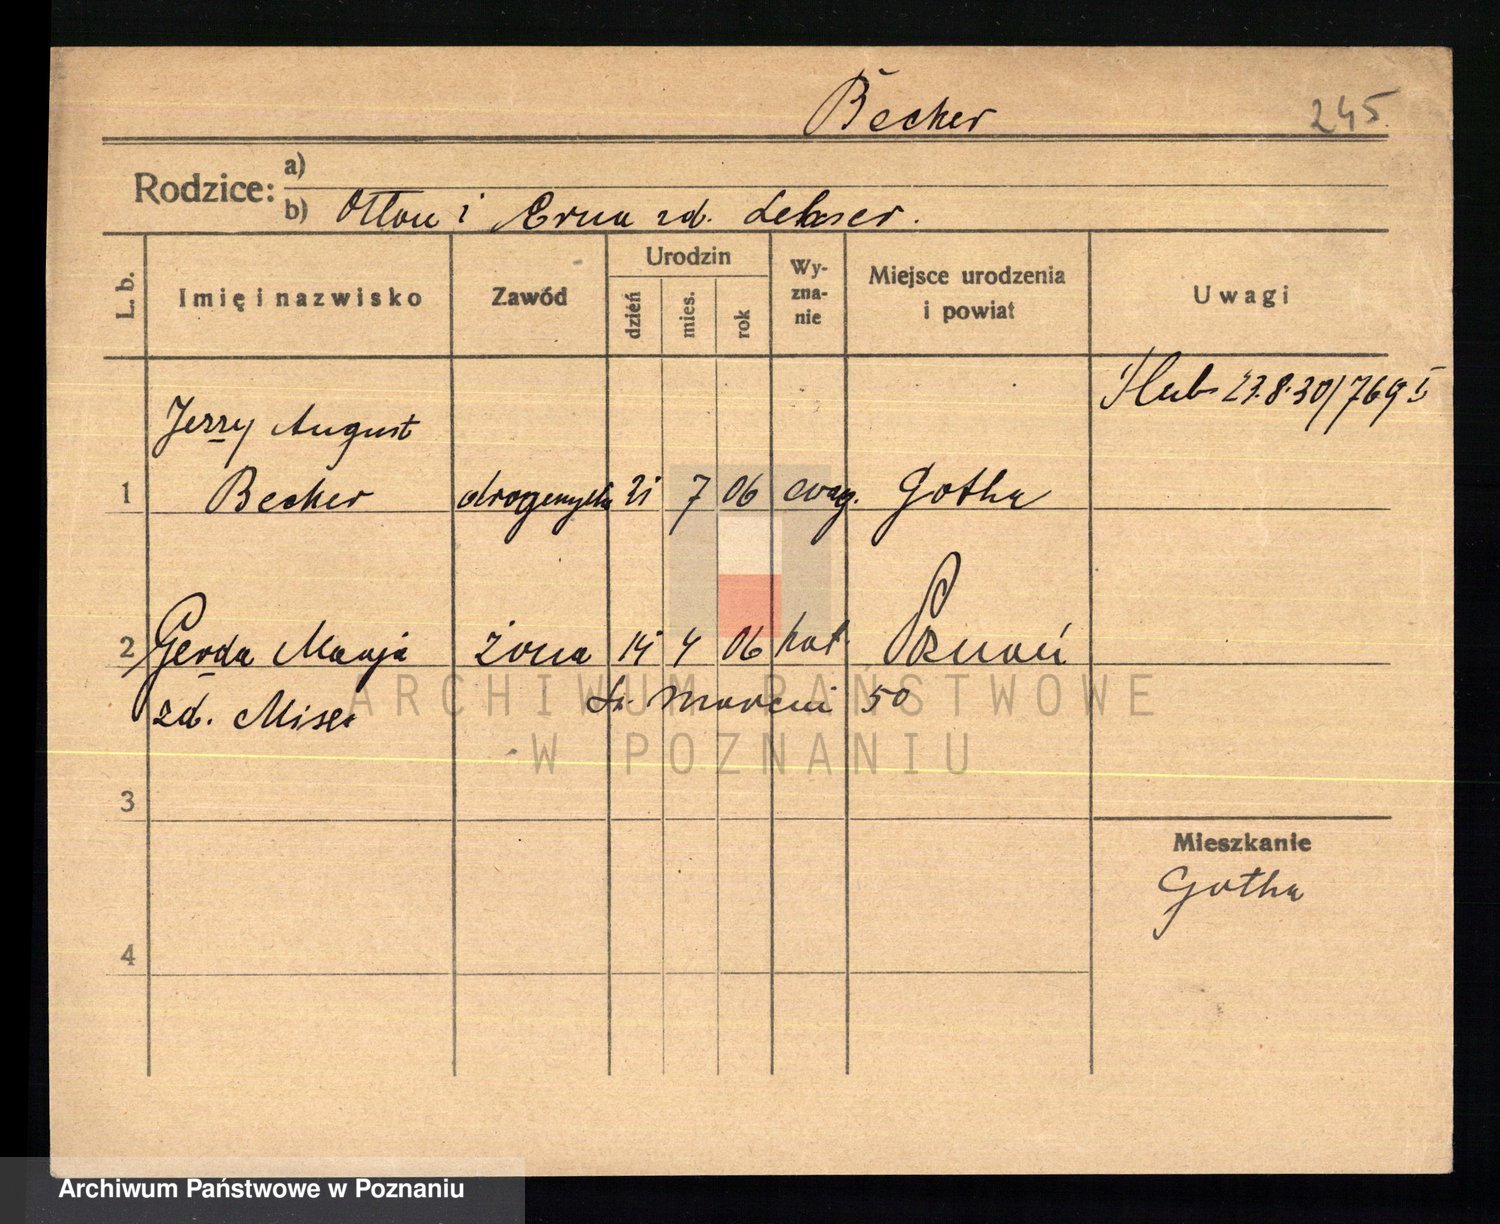 Becker
245
Rodzice: a)
b) Otton i Erna zd.
L. b. Imię i nazwisko Zawód Urodzin dzień mies. rok Wy-zna-nie Miejsce urodzenia i powiat Uwagi
Ślub 23.8.30/769 I
Jerzy August
1 Becker drogerzysta 21 7 06 ewag. Gotha
2 Gerda Marja żona 14 4 06 kat. Poznań
zd. Św. Marcin 50
ARCHIWUM PAŃSTWOWE
W POZNANIU
3
Mieszkanie
Gotha
4
Archiwum Państwowe w Poznaniu